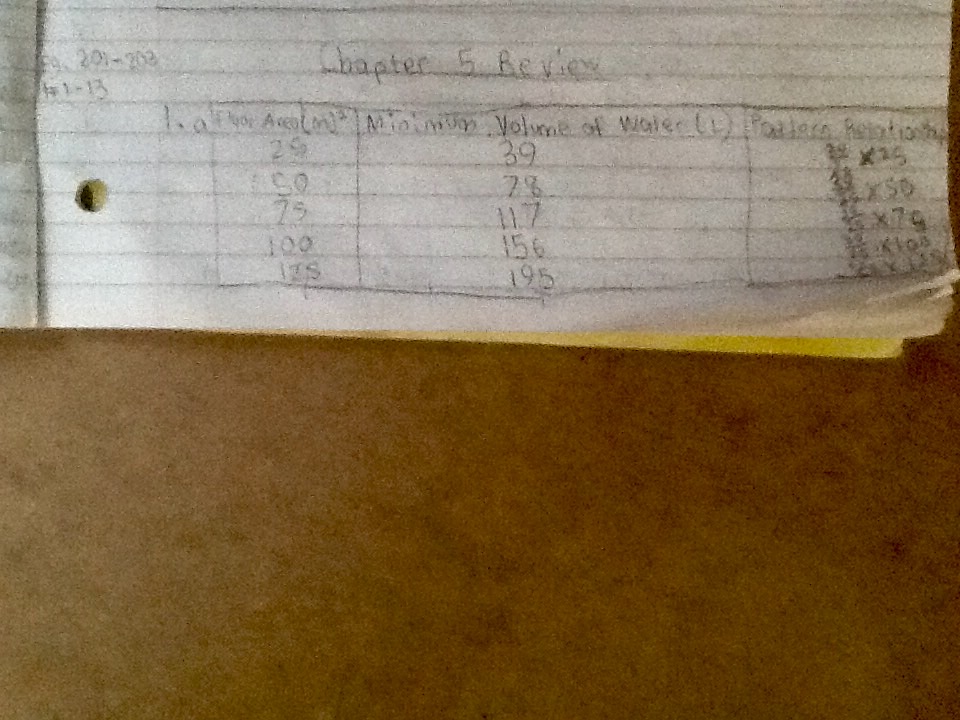 Pg. 201-203
#1-13
Chapter 5 Review
1. a Floor Area(m)² Minimum Volume of Water (L) Pattern
25 39 x25
50 78 x50
75 117 x75
100 156 x100
125 195